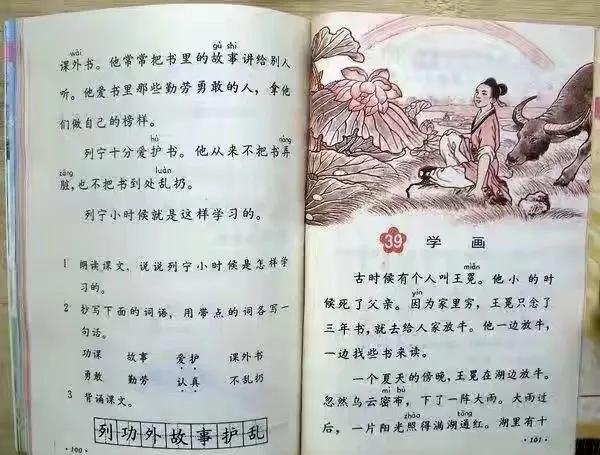 wài
gù shi
课外书。他常常把书里的故事讲给别人
听。他爱书里那些勤劳勇敢的人，拿他
们做自己的榜样。
hù
nòng
列宁十分爱护书。他从来不把书弄
zāng
luàn
脏，也不把书到处乱扔。
列宁小时候就是这样学习的。
1 朗读课文，说说列宁小时候是怎样学
习的。
2 抄写下面的词语，用带点的词各写一
句话。
功课 故事 爱护 课外书
勇敢 勤劳 认真 不乱扔
3 背诵课文。
列功外故事护乱
·100·
39 学画
miǎn
古时候有个人叫王冕。他小的时
yīn
候死了父亲。因为家里穷，王冕只念了
三年书，就去给人家放牛。他一边放牛，
一边找些书来读。
一个夏天的傍晚，王冕在湖边放牛。
mì bù
忽然乌云密布，下了一阵大雨。大雨过
zhào
tōng
后，一片阳光照得满湖通红。湖里有十
·101·